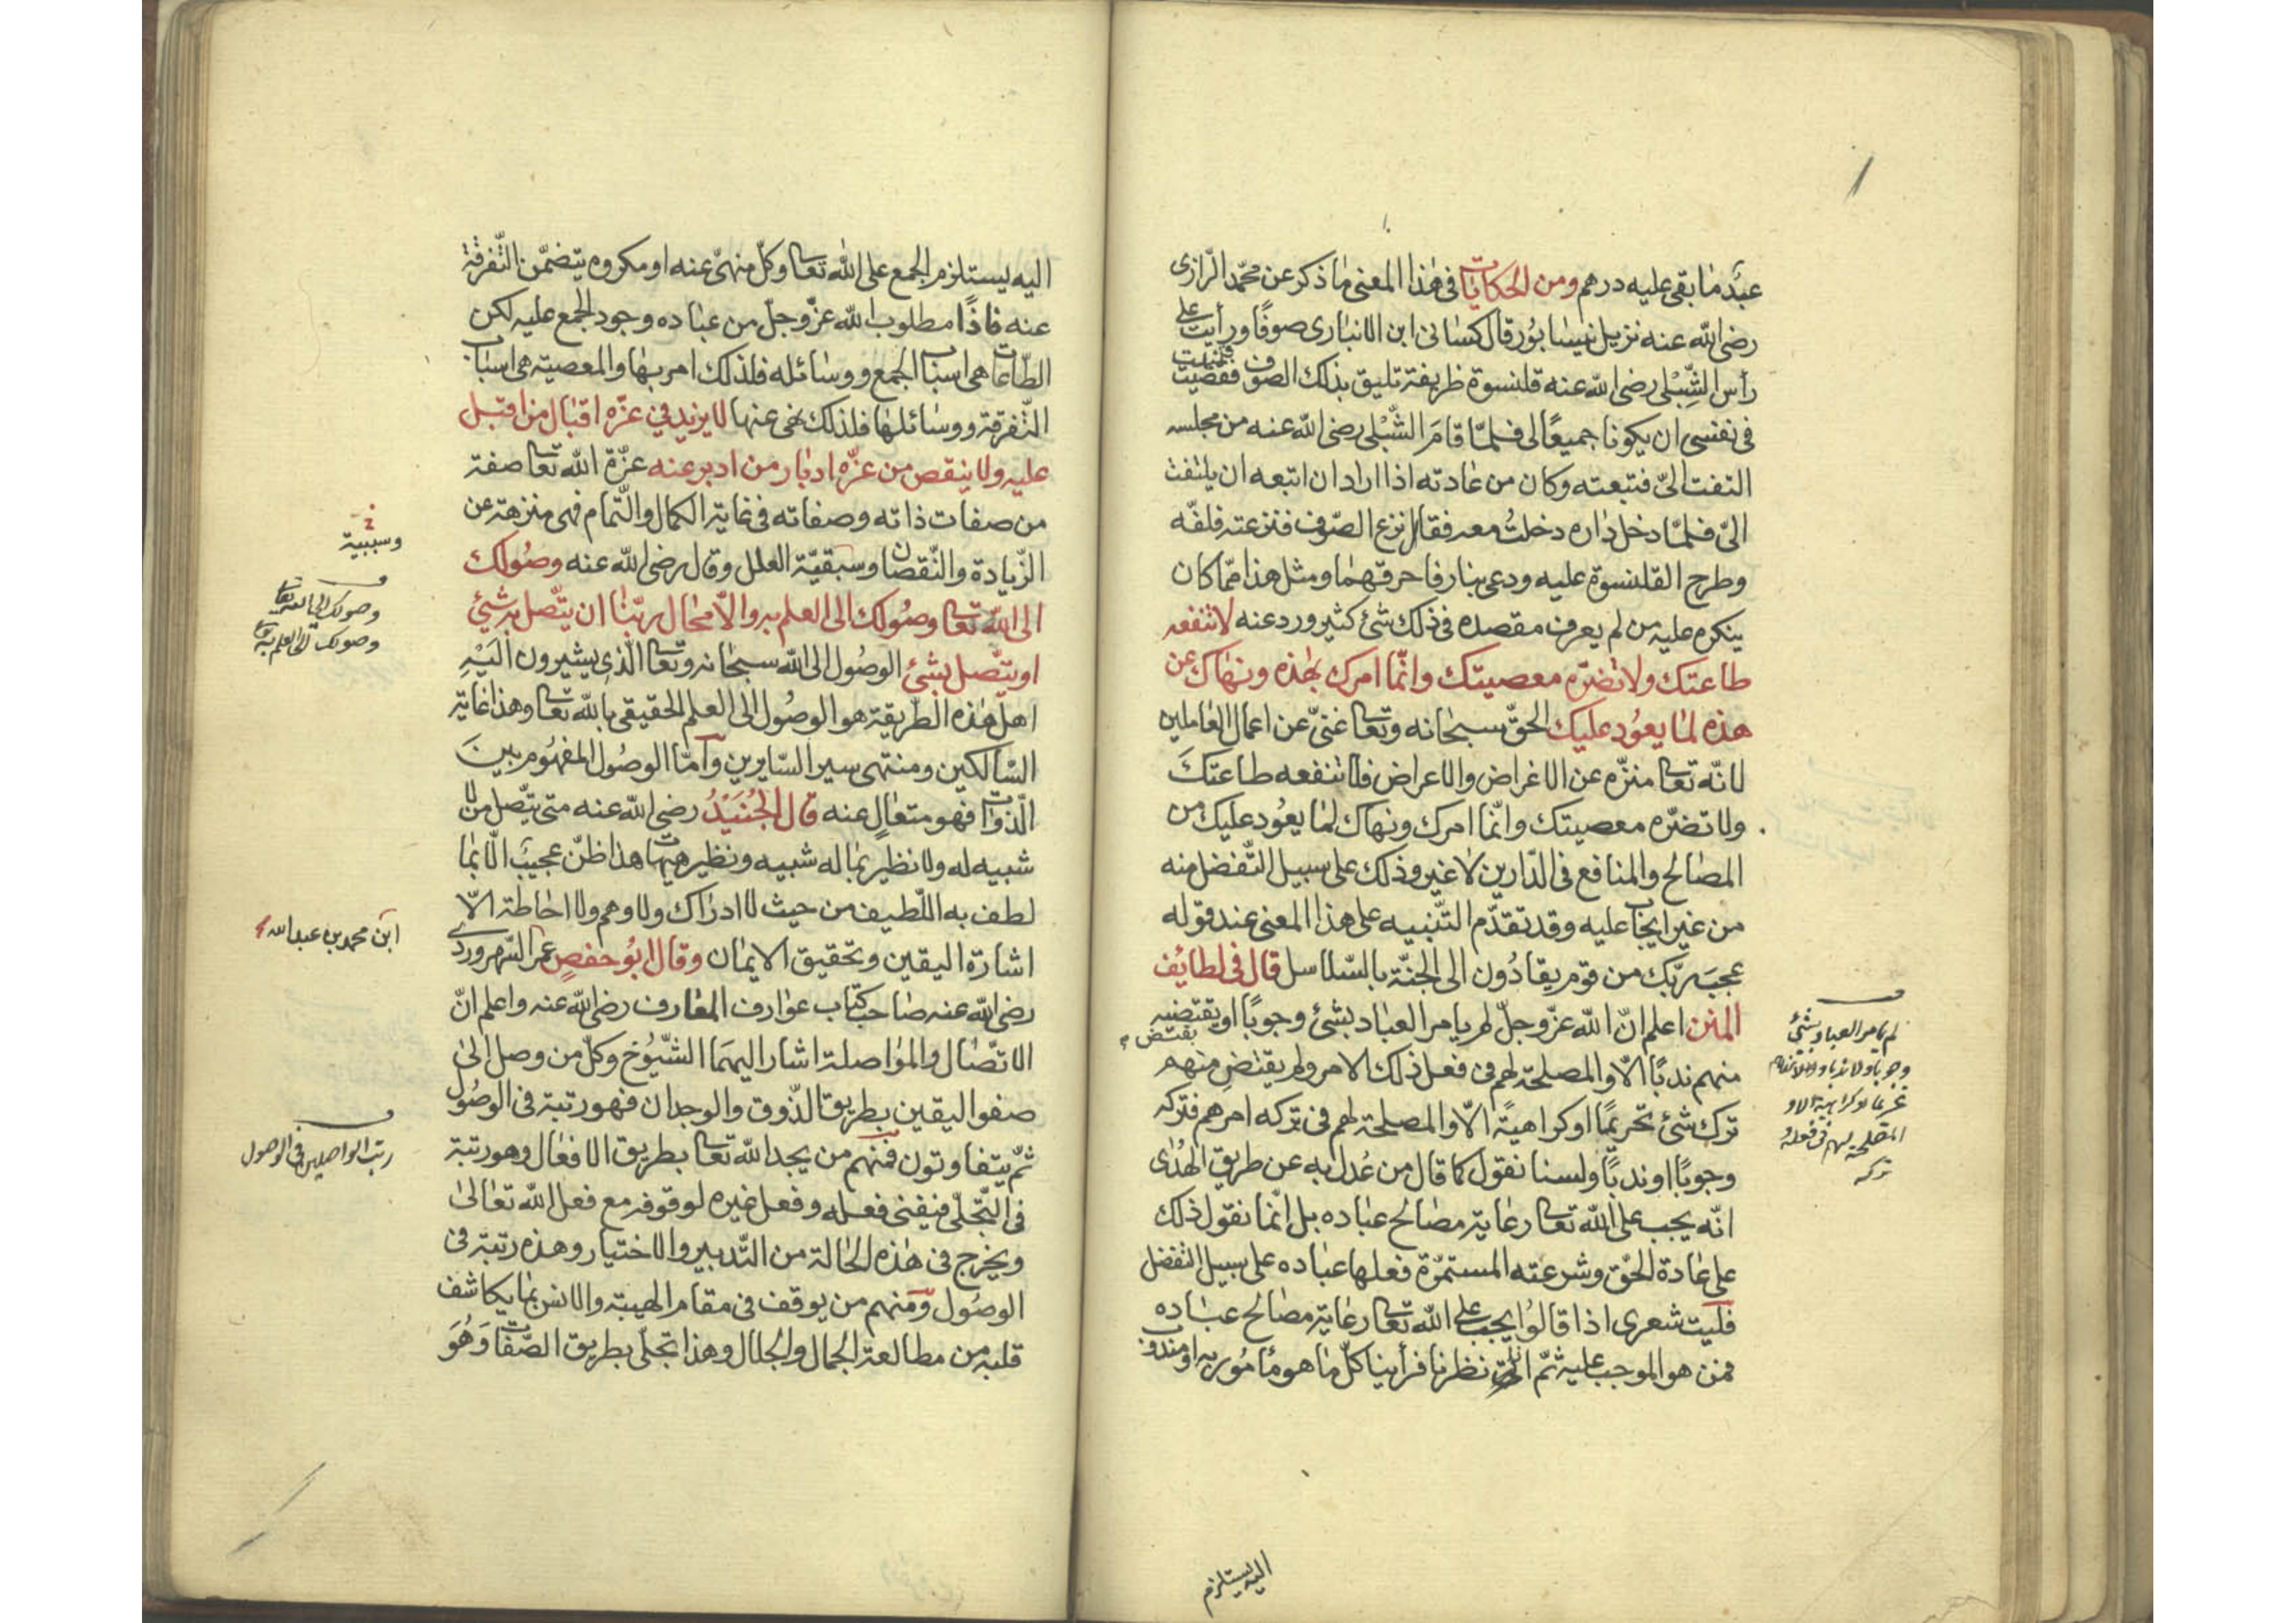 عبد ما بقى عليه درهم ومن الحكايات فى هذا المعنى ما ذكر عن محمّد الرّازى
رضى الله عنه نزيل نيسابور قال كسانى ابن الانبارى صوفًا ورأيت على
رأس الشّبلى رضى الله عنه قلنسوة ظريفة تليق بذلك الصوف فتمنيت
فى نفسى ان يكونا جميعًا لى فلمّا قامَ الشّبْلى رضى الله عنه من مجلسه
التفت الىّ فتبعته وكان من عادته اذا اراد ان اتبعه ان يلتفت
الىّ فلمّا دخل داره دخلتُ معه فقال انزع الصّوف فنزعته فلفّه
وطرح القلنسوة عليه ودعى بنار فاحرقهما ومثل هذا ممّا كان
ينكره عليه من لم يعرف مقصده فى ذلك شئ كثير ورد عنه لا تنفعه
طاعتك ولا تضرّه معصيتك وانّما امرك بهذه ونهاك عن
هذه لما يعُود عليك الحقّ سبحانه وتعا غنىّ عن اعمال العاملين
لانّه تعا منزّه عن الاغراض والاعراض فلا تنفعه طاعتكَ
ولا تضرّه معصيتك وانّما امرك ونهاك لما يعُود عليك من
المصالح والمنافع فى الدّارين لا غير وذلك على سبيل التّفضل منه
من غير ايجاب عليه وقد تقدّم التّنبيه على هذا المعنى عند قوله
عجبَ ربّك من قوم يقادُون الى الجنّة بالسّلاسل قال فى لطايف
المنن اعلم انّ الله عزّ وجلّ لم يامر العباد بشئ وجوبًا او يقتضيه
يقتض
منهم ندبًا الّا والمصلحة لهم فى فعل ذلك الامر ولم يقتضِ منهم
ترك شئ تحريمًا او كراهيةً الّا والمصلحة لهم فى تركه امرهم فتركه
وجوبًا او ندبًا ولسنا نقول كما قال من عُدل به عن طريق الهُدٰى
انّه يجب على الله تعا رعاية مصالح عباده بل انّما نقول ذلك
على عادة الحقّ وشرعته المستمرّة فعلها عباده على سبيل التفضل
فليت شعرى اذا قالُوا يجب على الله تعا رعاية مصالح عباده
فمن هو الموجب عليه ثمّ نظرنا فرأينا كلّ ما هو مأمُور به او مندوب
لم يامر العباد بشئ
وجوبا ولا ندبا
تحريما او كراهية الا و
المصلحة لهم فى فعله و
تركه
اليه يستلزم
اليه يستلزم الجمع على الله تعا وكلّ منهىّ عنه او مكروه يتضمّن التّفرقة
عنه فاذًا مطلوب الله عزّ وجلّ من عباده وجود الجمع عليه لكن
الطّاعات هى اسباب الجمع ووسائله فلذلك امر بها والمعصية هى اسباب
التّفرقة ووسائلها فلذلك نهى عنها لا يزيد فى عزّه اقبال من اقبل
عليه ولا ينقص من عزّه ادبار من ادبر عنه عزّة الله تعا صفة
من صفات ذاته وصفاته فى غاية الكمال والتّمام فهى منزهة عن
الزّيادة والنّقصان وسبقيّة العلل وقال رضى الله عنه وصُولك
الى الله تعا وصُولك الى العلم به والاّ فجال ربّنا ان يتّصل به شيئ
او يتّصل بشئ الوصُول الى الله سبحانه وتعا الّذى يشيرون اليْهِ
اهل هذه الطّريقة هو الوصُول الى العلم الحقيقى بالله تعا وهذا غاية
السّالكين ومنتهى سير السّايرين وامّا الوصُول المفهُوم بينَ
الذّوات فهو متعالٍ عنه قال الجُنَيْدُ رضى الله عنه متى يتّصل من لا
شبيه له ولا نظير بما له شبيه ونظير هيهات هذا ظنّ عجيبَ الّا بما
لطف به اللّطيف من حيث لا ادراك ولا وهم ولا احاطة الاّ
اشارة اليقين وتحقيق الايمان وقال ابُو حفصٍ عمر السّهروردى
رضى الله عنه صاحب كتاب عوارف المعارف رضى الله عنه واعلم انّ
الاتّصال والمواصلة اشار اليهمَا الشّيُوخ وكلّ من وصل الىٰ
صفو اليقين بطريق الذّوق والوجدان فهو رتبة فى الوصُول
ثمّ يتفاوتون فمنهم من يجد الله تعا بطريق الافعال وهو رتبة
فى التّجلّى فيفنى فعله وفعل غيره لوقوفه مع فعل الله تعالىٰ
ويخرج فى هذه الحالة من التّدبير والاختيار وهذه رتبة فى
الوصُول ومنهم من يوقف فى مقام الهيبة والانس بما يكاشف
قلبه من مطالعة الجمال والجلال وهذا تجلّى بطريق الصّفات وَهُوَ
وسببية
وصولك الى الله تعا
وصولك الى العلم به
ابن محمد بن عبد الله
رتب الواصلين فى الوصول